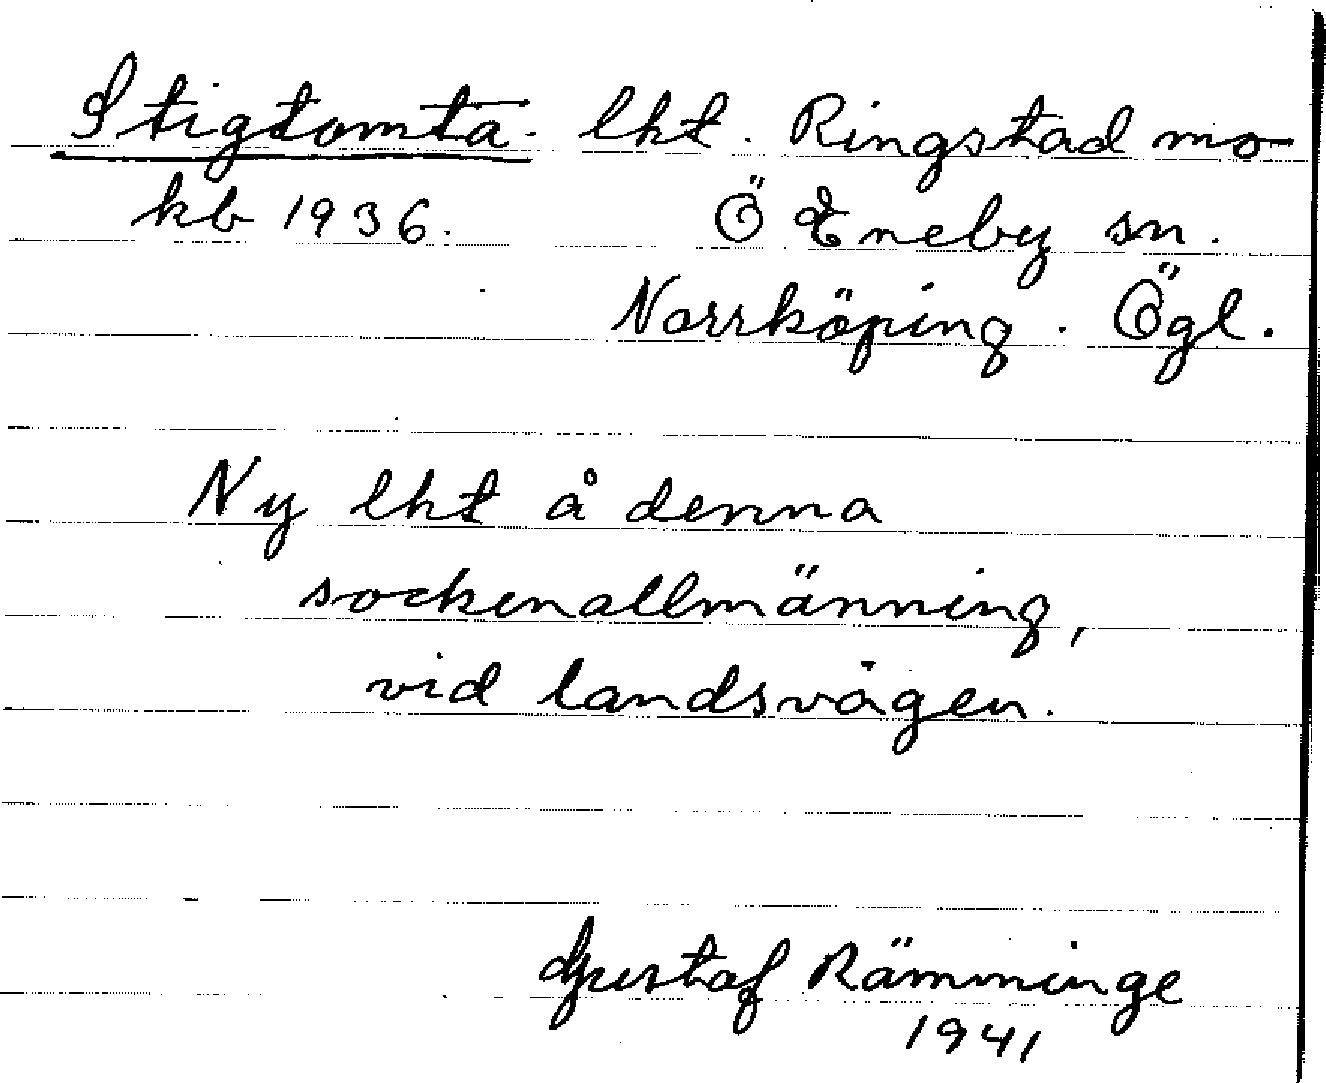 Stigtomta. lht. Ringstad mo
kb 1936. Ö Eneby sn.
Norrköping. Ögl.
Ny lht å denna
sockenallmänning,
vid landsvägen.
Gustaf Rämminge
1941